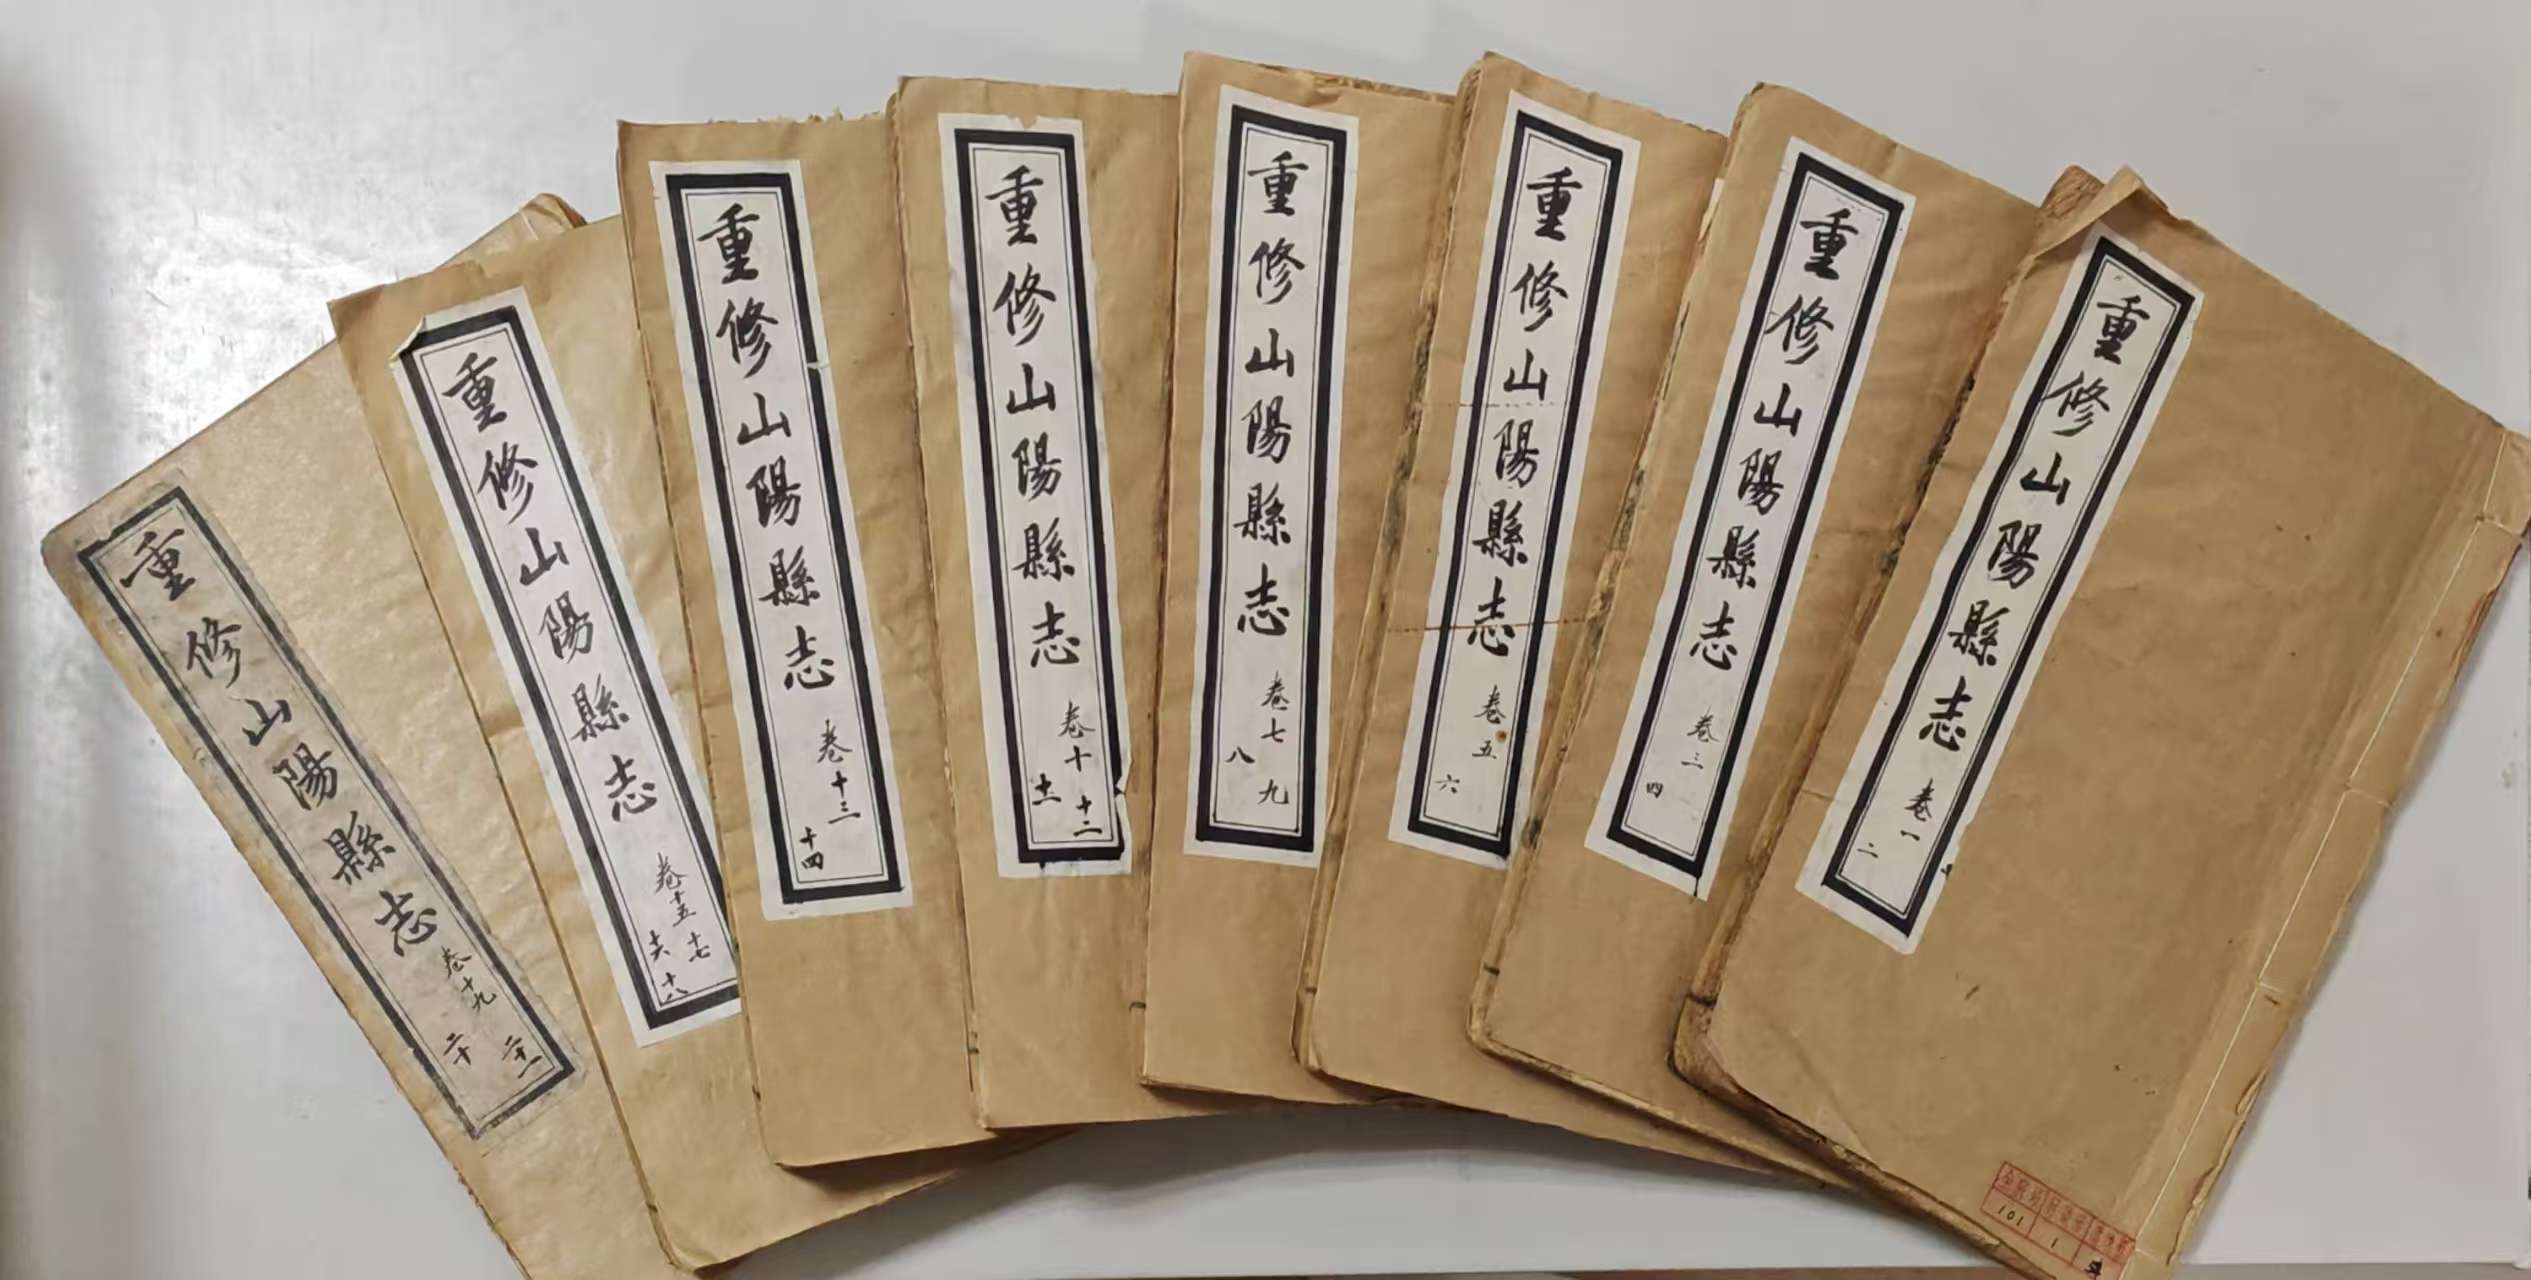 重修山陽縣志 卷一
二
重修山陽縣志 卷三
四
重修山陽縣志 卷五
六
重修山陽縣志 卷七
八 九
重修山陽縣志 卷十
十一 十二
重修山陽縣志 卷十三
十四
重修山陽縣志 卷十五
十六 十七 十八
重修山陽縣志 卷十九
二十 二十一
101
1